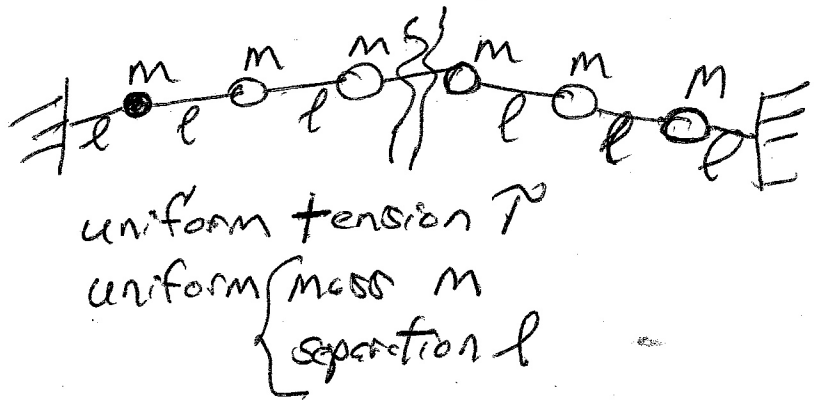 m m m m m m
l l l l l l l
uniform tension T
uniform { mass m
separation l